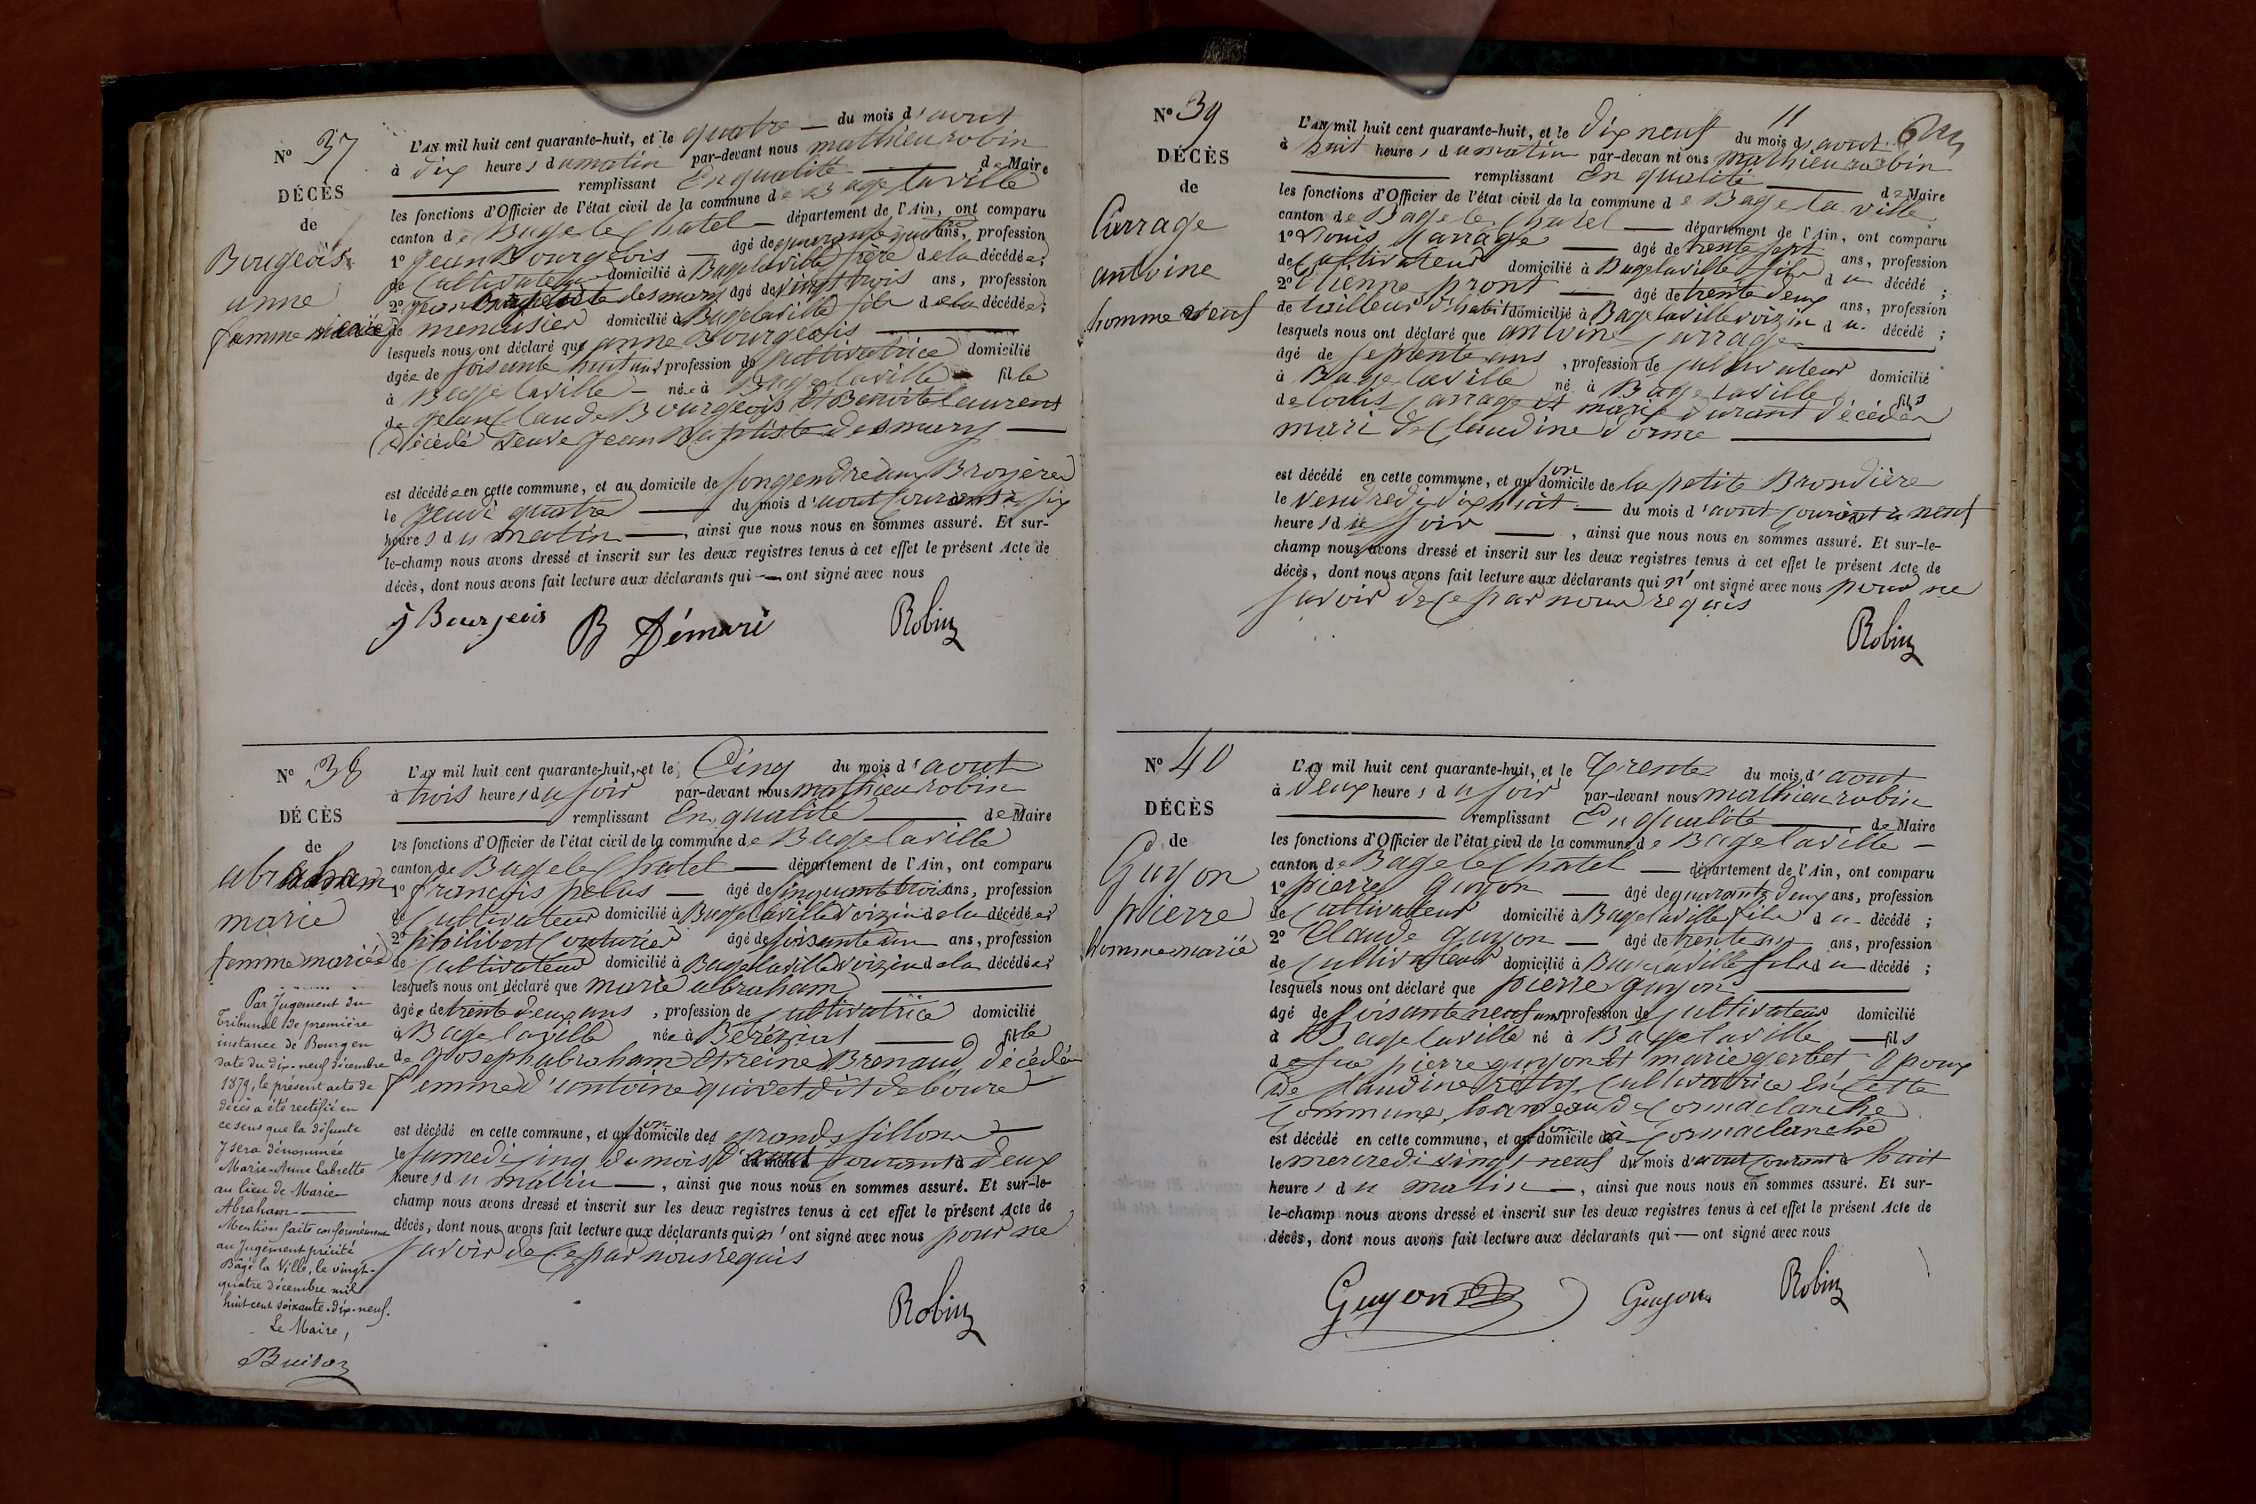 N° 37
DÉCÈS
de
Bourgeois
anne
femme mariée
L'AN mil huit cent quarante-huit, et le quatre — du mois d'aout
à dix heures du matin par-devant nous mathieu robin
remplissant En qualité de Maire
les fonctions d'Officier de l'état civil de la commune de Bage la ville
canton de Bage le Chatel — département de l'Ain, ont comparu
1° jean Bourgeois âgé de quarante ans, profession
de Cultivateur domicilié à Bage la ville frère de la décédée;
2° desmury âgé de vingt trois ans, profession
de menuisier domicilié à Bage la ville fils de la décédée;
lesquels nous ont déclaré que anne Bourgeois
âgée de soisante huit ans profession de Cultivatrice domicilié
à Bage la ville — née à Bage la ville fille
de jean Claude Bourgeois Et Benoite Laurent
décédé veuve jean Baptiste desmury —
est décédée en cette commune, et au domicile de son gendre aux Broyères
le jeudi quatre — du mois d'aout courant à six
heures du matin —, ainsi que nous nous en sommes assuré. Et sur-
le-champ nous avons dressé et inscrit sur les deux registres tenus à cet effet le présent Acte de
décès, dont nous avons fait lecture aux déclarants qui — ont signé avec nous
j Bourjeois B Démuri Robin
N° 38
DÉCÈS
de
abraham
marie
femme mariée
Par Jugement du
Tribunal de première
instance de Bourg en
date du dix-neuf décembre
1879, le présent acte de
décès a été rectifié en
ce sens que la défunte
y sera dénommée
Marie-Anne Labrette
au lieu de Marie
Abraham —
Mention faite conformément
au Jugement précité
Bâgé la Ville, le vingt-
quatre décembre mil
huit cent soixante-dix-neuf.
Le Maire,
L'AN mil huit cent quarante-huit, et le Cinq du mois d'aout
à trois heures du soir par-devant nous mathieu robin
remplissant En qualité de Maire
les fonctions d'Officier de l'état civil de la commune de Bage la ville
canton de Bage le Chatel — département de l'Ain, ont comparu
1° françois pelus — âgé de cinquante trois ans, profession
de Cultivateur domicilié à Bage la ville voizin de la décédée;
2° philibert Couturier âgé de soisante un ans, profession
de Cultivateur domicilié à Bage la ville voizin de la décédée;
lesquels nous ont déclaré que marie abraham
âgée de trente deux ans, profession de Cultivatrice domicilié
à Bage la ville née à Berézia fille
de joseph abraham Et reine Brenaud décédés
femme d'antoine
est décédé en cette commune, et au son domicile des grands sillons —
le samedi cinq du mois d'aout courant à deux
heures du matin —, ainsi que nous nous en sommes assuré. Et sur-le-
champ nous avons dressé et inscrit sur les deux registres tenus à cet effet le présent Acte de
décès, dont nous avons fait lecture aux déclarants qui n'ont signé avec nous pour ne
savoir de ce par nous requis
Robin
N° 39
DÉCÈS
de
Carrage
antoine
homme veuf
L'AN mil huit cent quarante-huit, et le Dix neuf du mois d'aout
à huit heures du matin par-devant nous mathieu robin
remplissant En qualité de Maire
les fonctions d'Officier de l'état civil de la commune de Bage la ville
canton de Bage le Chatel — département de l'Ain, ont comparu
1° Louis Carrage — âgé de trente sept ans, profession
de Cultivateur domicilié à Bage la ville fils du décédé;
2° Etienne pront — âgé de trente deux ans, profession
de tailleur d'habit domicilié à Bage la ville voizin du décédé;
lesquels nous ont déclaré que antoine Carrage
âgé de septente ans, profession de Cultivateur domicilié
à Bage la ville né à Bage la ville fils
de Louis Carrage et marie durant décédés
mari de Claudine dorme
est décédé en cette commune, et au son domicile de la petite Brondière
le vendredi dix huit — du mois d'aout courant à neuf
heures du soir —, ainsi que nous nous en sommes assuré. Et sur-le-
champ nous avons dressé et inscrit sur les deux registres tenus à cet effet le présent Acte de
décès, dont nous avons fait lecture aux déclarants qui n'ont signé avec nous pour ne
savoir de ce par nous requis
Robin
N° 40
DÉCÈS
de
Guyon
pierre
homme marié
L'AN mil huit cent quarante-huit, et le Trente du mois d'aout
à deux heures du soir par-devant nous mathieu robin
remplissant En qualité de Maire
les fonctions d'Officier de l'état civil de la commune de Bage la ville —
canton de Bage le Chatel — département de l'Ain, ont comparu
1° pierre guyon — âgé de quarante deux ans, profession
de Cultivateur domicilié à Bage la ville fils du décédé;
2° Claude guyon — âgé de trente ans, profession
de Cultivateur domicilié à Bage la ville fils du décédé;
lesquels nous ont déclaré que pierre guyon
âgé de soisante neuf ans profession de Cultivateur domicilié
à Bage la ville né à Bage la ville — fils
de feu pierre guyon Et marie gerbet Epoux
de Claudine Cultivatrice En cette
Commune, hameau de Cormaclanche
est décédé en cette commune, et au son domicile à Cormaclanche
le mercredi vingt neuf du mois d'aout courant à huit
heures du matin —, ainsi que nous nous en sommes assuré. Et sur-
le-champ nous avons dressé et inscrit sur les deux registres tenus à cet effet le présent Acte de
décès, dont nous avons fait lecture aux déclarants qui — ont signé avec nous
Guyon Guyon Robin